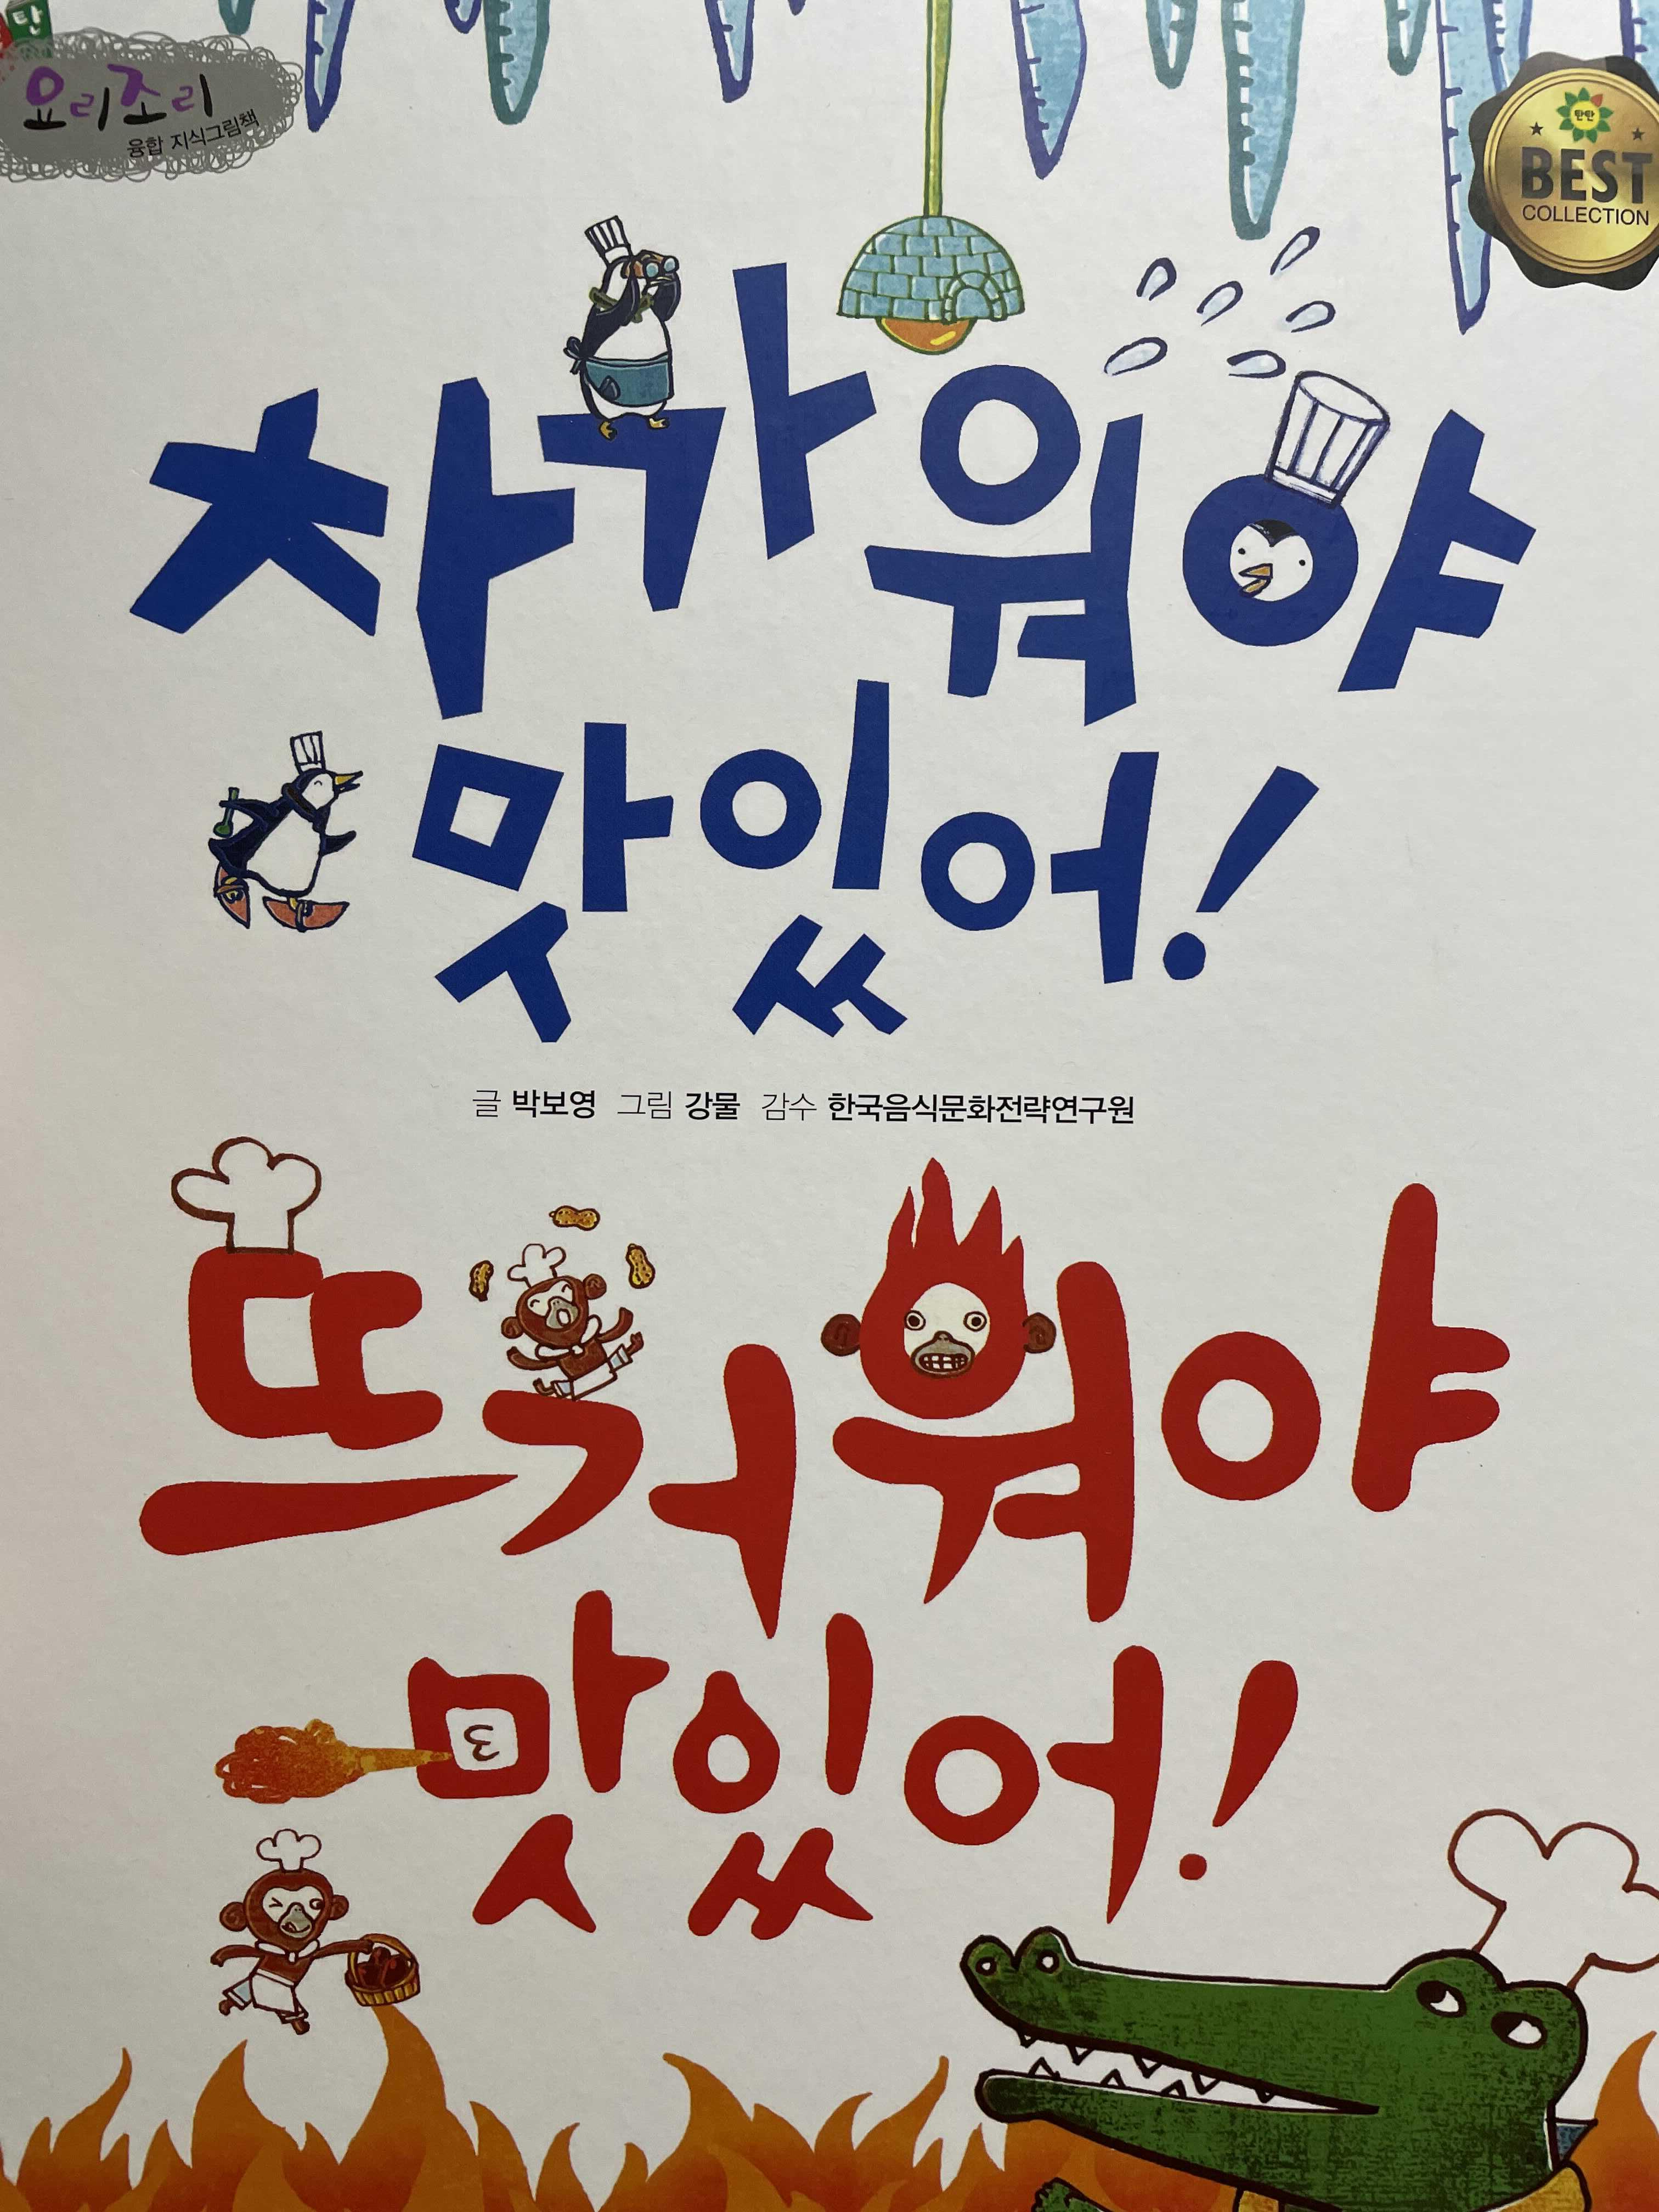 탄
요리조리
융합 지식그림책
탄탄
BEST
COLLECTION
차가워야
맛있어!
글 박보영 그림 강물 감수 한국음식문화전략연구원
뜨거워야
맛있어!